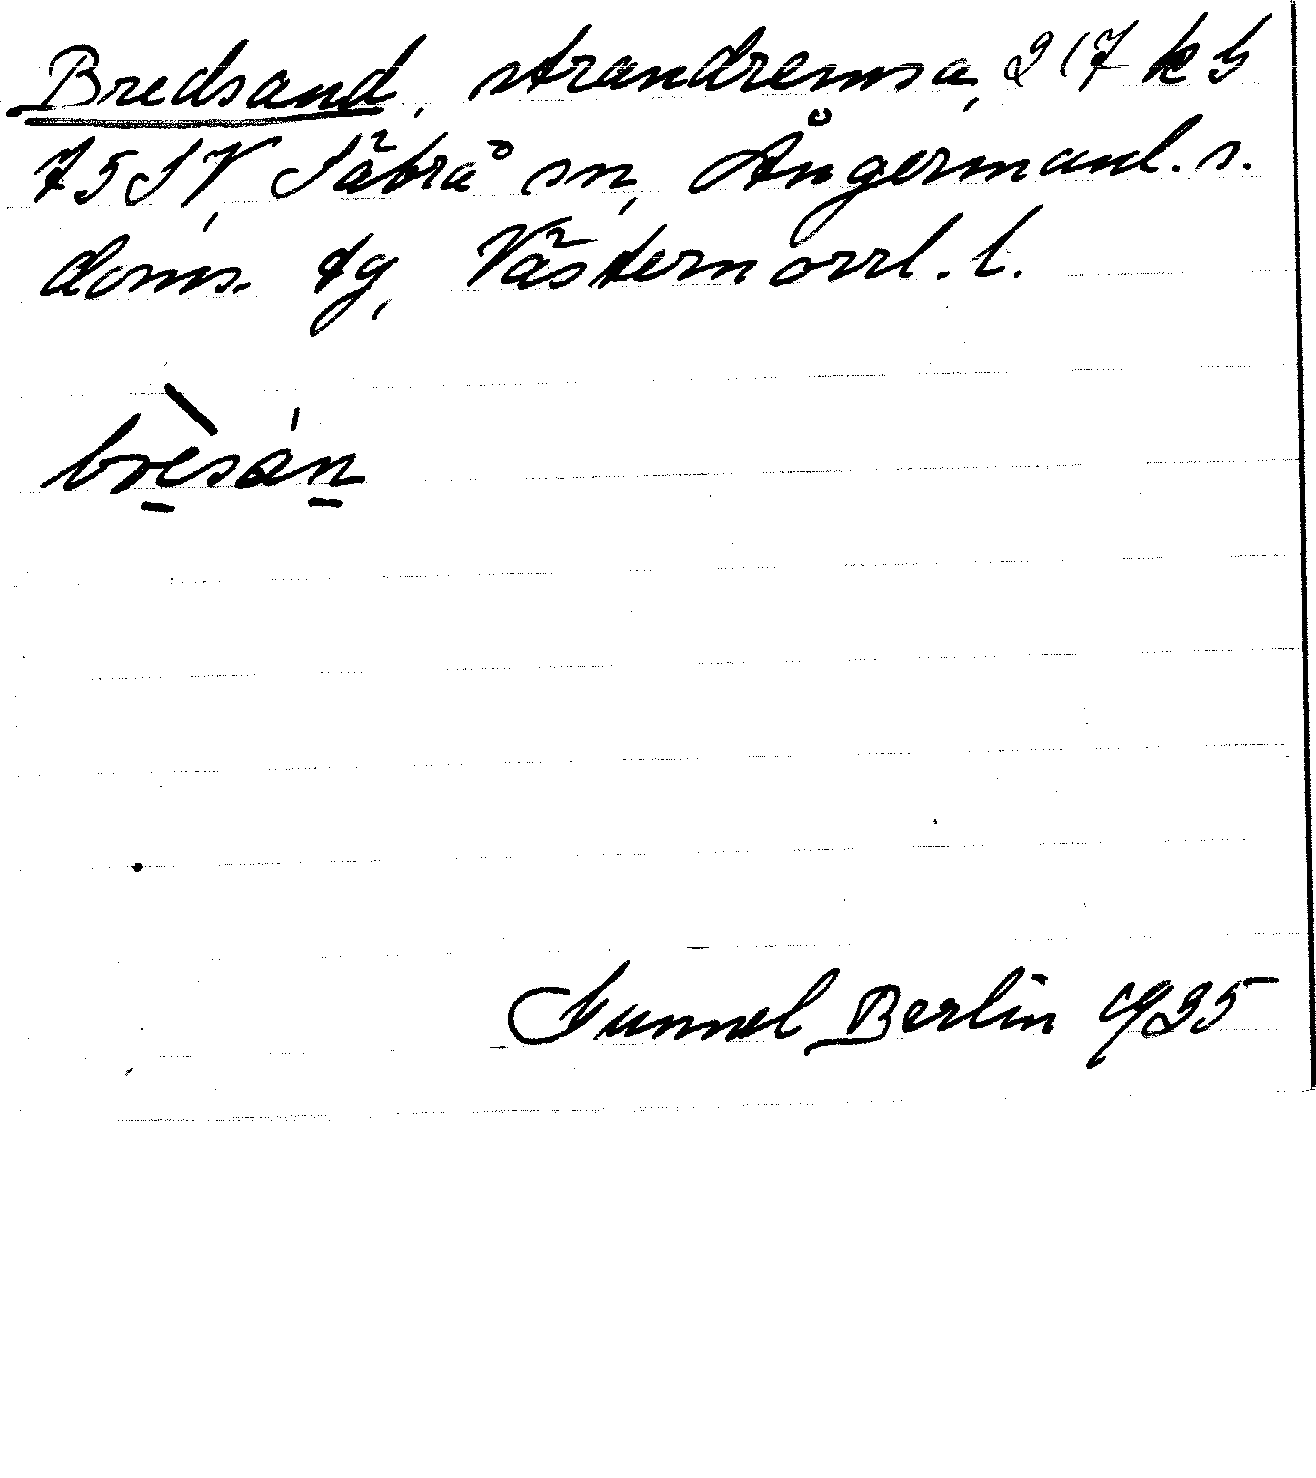 Bredsand, strandremsa, 217 kb
75 SV, Säbrå sn, Ångermanl. s.
doms. tg, Västernorrl. l.
brèsán
Gunnel Berlin 1935